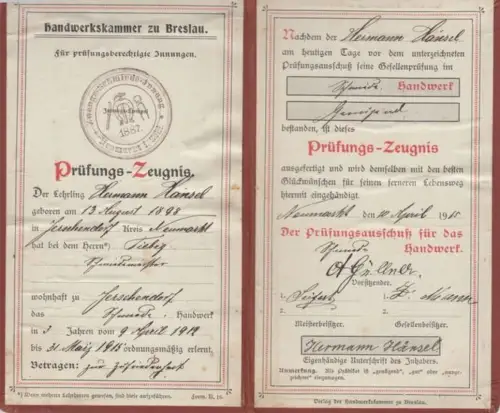 Handwerkskammer zu Breslau.
Für prüfungsberechtigte Innungen.
Zwangs-Schmiede-Innung
1887
Neumarkt
Prüfungs-Zeugnis.
Der Lehrling Hermann Hänsel
geboren am 13 August 1898
in Jerschendorf Kreis Neumarkt
hat bei dem Herrn*)
Schmiedemeister
wohnhaft zu Jerschendorf
das Schmiede Handwerk
in 3 Jahren vom 9 April 1912
bis 31 März 1915 ordnungsmäßig erlernt.
Betragen: zur Zufriedenheit
*) Wenn mehrere Lehrherren gewesen, sind diese aufzuführen. Form. R. 10.
Nachdem der Hermann Hänsel
am heutigen Tage vor dem unterzeichneten
Prüfungsausschuß seine Gesellenprüfung im
Schmiede Handwerk
bestanden, ist dieses
Prüfungs-Zeugnis
ausgefertigt und wird demselben mit den besten
Glückwünschen für seinen ferneren Lebensweg
hiermit eingehändigt.
Neumarkt, den 10 April 1915
Der Prüfungsausschuß für das
Schmiede Handwerk.
Vorsitzender.
1. Seifert 1.
2. 2.
Meisterbeisitzer. Gesellenbeisitzer.
Hermann Hänsel
Eigenhändige Unterschrift des Inhabers.
Anmerkung. Als Prädikat ist „genügend“, „gut“ oder „ausgezeichnet“ einzutragen.
Verlag der Handwerkskammer zu Breslau.